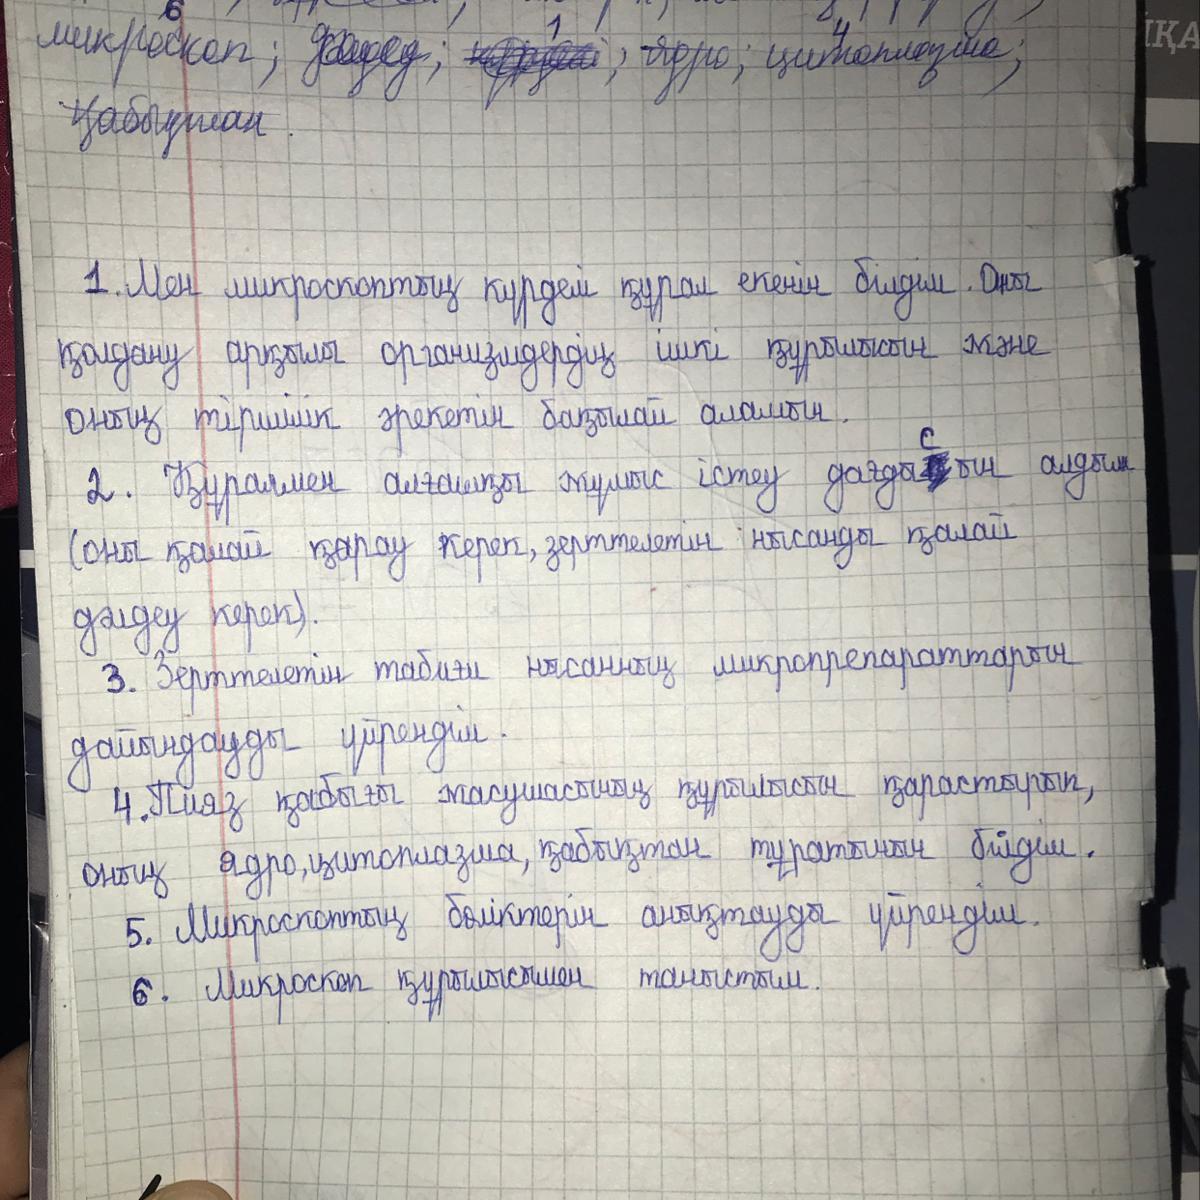 6
1
4
микроскоп; ; ядро; цитоплазма;
қабықтан.
ІҚА
1. Мен микроскоптың күрделі құрал екенін білдім. Оны
қолдану арқылы организмдердің ішкі құрылысын және
оның тіршілік әрекетін бақылай аламын.
с
2. Құралмен алғашқы жұмыс істеу дағдысын алдым
(оны қалай қарау керек, зерттелетін нысанды қалай
дәлдеу керек).
3. Зерттелетін табиғи нысанның микропрепараттарын
дайындауды үйрендім.
4. Пияз қабығы жасушасының құрылысын қарастырып,
оның ядро, цитоплазма, қабықтан тұратынын білдім.
5. Микроскоптың бөліктерін анықтауды үйрендім.
6. Микроскоп құрылысымен таныстым.